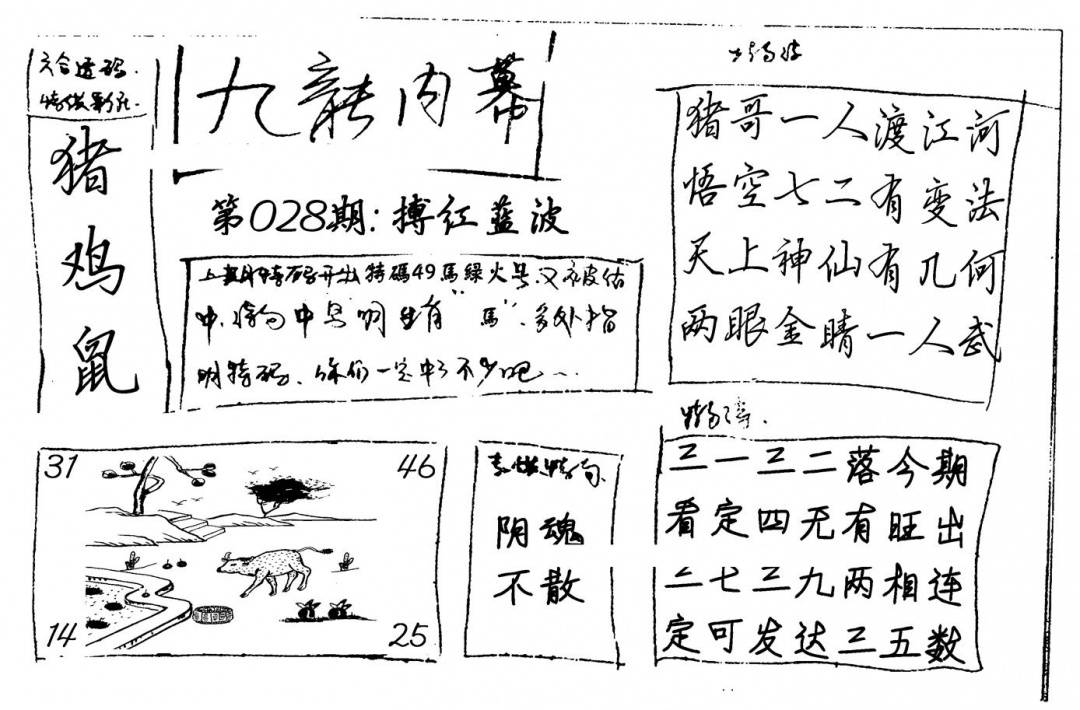 六合透码
猪
鸡
鼠
九龍内幕
第028期:搏红蓝波
上期特码开出特碼49馬緑火号又被估
中,
中号明生有“馬”,多处指
明特码,你们一定中了不少吧…
猪哥一人渡江河
悟空七二有变法
天上神仙有几何
两眼金睛一人武
31
46
14
25
阴魂
不散
三一三二落今期
看定四无有旺出
二七三九两相连
定可发达三五数